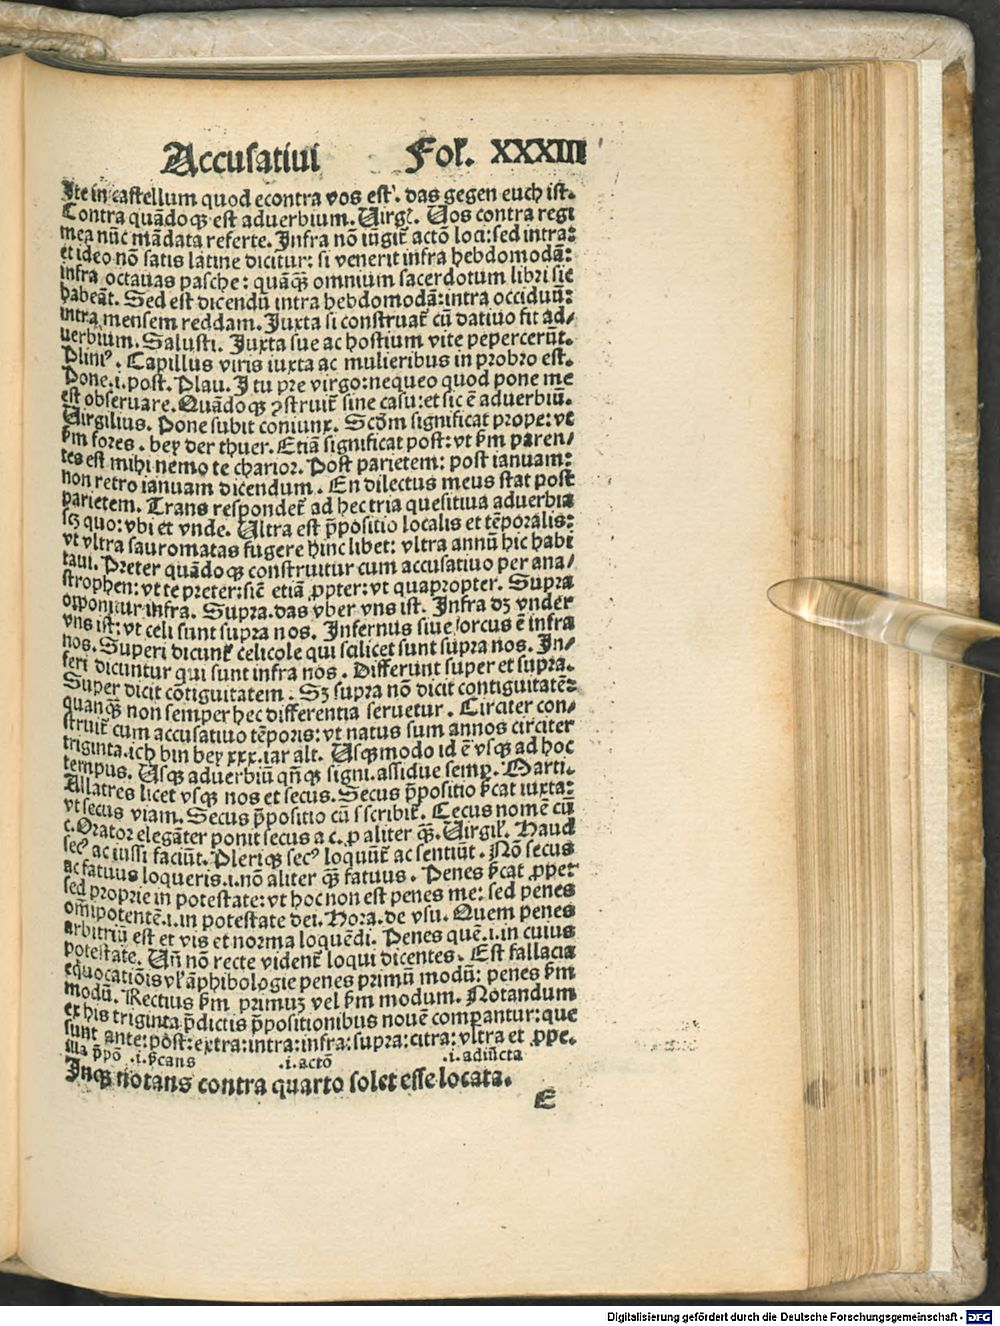 Accusatiui Fol. XXXIII
Ite in castellum quod econtra vos est. das gegen euch ist.
Contra quãdoqꝫ est aduerbium. Virgͥ. Vos contra regi
mea nũc mãdata referte. Infra nõ iũgit̃ actõ loci: sed intra:
et ideo nõ satis latine dicitur: si venerit infra hebdomodã:
infra octauas pasche: quãq̃ omnium sacerdotum libri sic
habeãt. Sed est dicendũ intra hebdomodã: intra occiduũ:
intra mensem reddam. Juxta si construat̃ cũ datiuo fit ad/
uerbium. Salusti. Juxta sue ac hostium vite pepercerũt.
Pliniꝰ. Capillus viris iuxta ac mulieribus in probro est.
Pone .i. post. Plau. I tu pre virgo: nequeo quod pone me
est obseruare. Quãdoqꝫ ꝯstruit̃ sine casu: et sic ẽ aduerbiũ.
Virgilius. Pone subit coniunx. Scd̃m significat prope: vt
ẜm fores . bey der thuer. Etiã significat post: vt ẜm paren/
tes est mihi nemo te charior. Post parietem: post ianuam:
non retro ianuam dicendum . En dilectus meus stat post
parietem. Trans respondet̃ ad hec tria quesitiua aduerbia
scꝫ quo: vbi et vnde. Vltra est p̃positio localis et tẽporalis:
vt vltra sauromatas fugere hinc libet: vltra annũ hic habi
taui. Preter quãdoqꝫ construitur cum accusatiuo per ana/
strophen: vt te preter: sic̃ etiã ꝓpter: vt quapropter. Supra
opponitur infra. Supra. das vber vns ist. Infra dꝫ vnder
vns ist: vt celi sunt supra nos. Infernus siue orcus ẽ infra
nos. Superi dicunt̃ celicole qui scilicet sunt supra nos. In/
feri dicuntur qui sunt infra nos . Differunt super et supra.
Super dicit cõtiguitatem . Sꝫ supra nõ dicit contiguitatẽ:
quanq̃ non semper hec differentia seruetur . Circiter con/
struit̃ cum accusatiuo tẽporis: vt natus sum annos circiter
triginta. ich bin bey xxx. iar alt. Vsqꝫmodo id ẽ vsqꝫ ad hoc
tempus. Vsqꝫ aduerbiũ qñqꝫ signi. assidue semꝑ. Marti.
Allatres licet vsqꝫ nos et secus. Secus p̃positio ẜcat iuxta:
vt secus viam. Secus p̃positio cũ s scribit̃. Cecus nomẽ cũ
c. Orator elegãter ponit secus a c. ꝓ aliter q̃. Virgil̃. Haud
secꝰ ac iussi faciũt. Pleriqꝫ secꝰ loquũt̃ ac sentiũt . Nõ secus
ac fatuus loqueris .i. nõ aliter q̃ fatuus . Penes ẜcat ꝓpe:
sed proprie in potestate: vt hoc non est penes me: sed penes
om̃ipotentẽ .i. in potestate dei. Hora. de vsu. Quem penes
arbitriũ est et vis et norma loquẽdi. Penes quẽ .i. in cuius
potestate. Vñ nõ recte vident̃ loqui dicentes . Est fallacia
equocatiõis vl̃ ãphibologie penes primũ modũ: penes ẜm
modũ. Rectius ẜm primuꝫ vel ẜm modum. Notandum
ex his triginta p̃dictis p̃positionibus nouẽ comparantur: que
sunt ante: post: extra: intra: infra: supra: citra: vltra et ꝓpe.
illa p̃põ .i. ẜcans .i. actõ .i. adiũcta
Inqꝫ notans contra quarto solet esse locata.
E
Digitalisierung gefördert durch die Deutsche Forschungsgemeinschaft - DFG